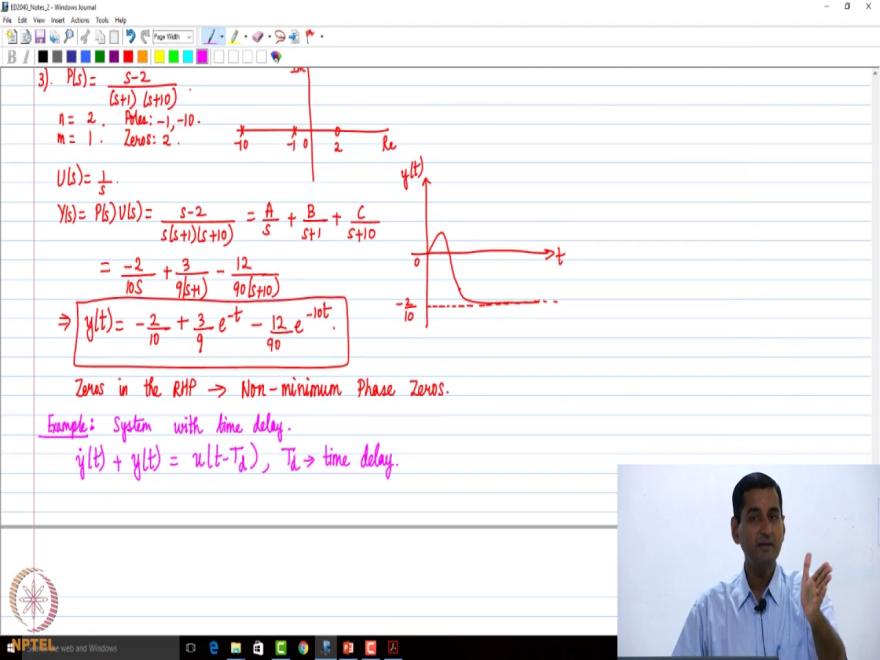 ED2040_Notes_2 - Windows Journal
File Edit View Insert Actions Tools Help
Page Width
B I
3). P(s) = (s-2)/((s+1)(s+10)).
n = 2. Poles: -1, -10.
m = 1. Zeros: 2.
Im
-10 -1 0 2 Re
U(s) = 1/s.
Y(s) = P(s) U(s) = (s-2)/(s(s+1)(s+10)) = A/s + B/(s+1) + C/(s+10)
= -2/(10s) + 3/(9(s+1)) - 12/(90(s+10))
⇒ y(t) = -2/10 + 3/9 e^{-t} - 12/90 e^{-10t}.
y(t)
0 t
-2/10
Zeros in the RHP → Non-minimum Phase Zeros.
Example: System with time delay.
ẏ(t) + y(t) = u(t-T_d), T_d → time delay.
NPTEL
the web and Windows